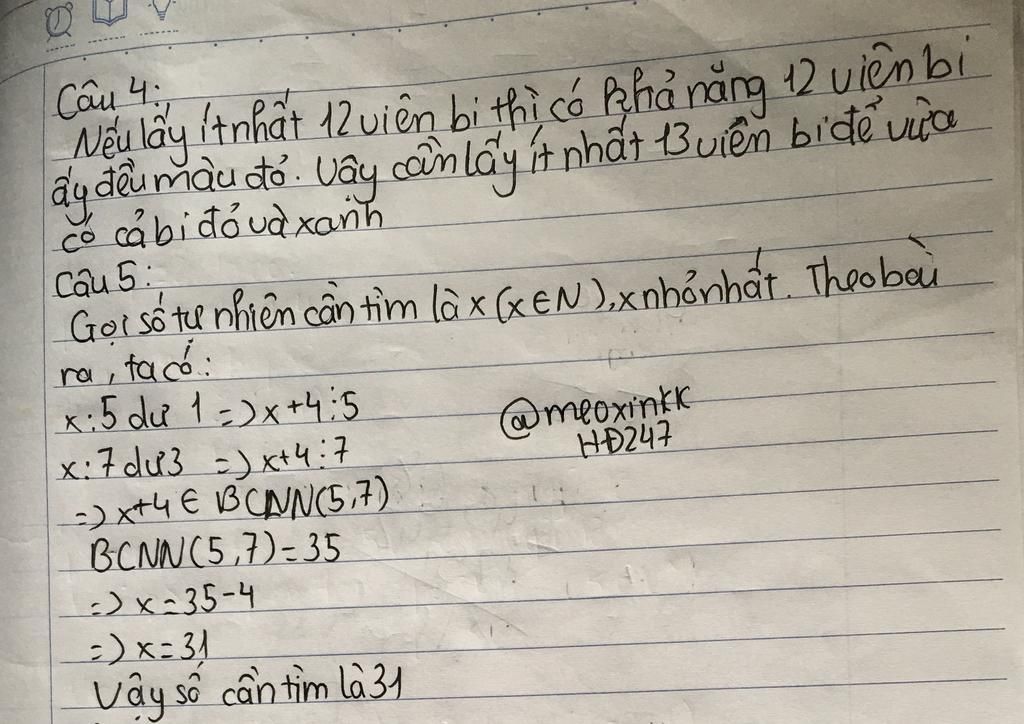 Câu 4:
Nếu lấy ít nhất 12 viên bi thì có khả năng 12 viên bi
ấy đều màu đỏ. Vậy cần lấy ít nhất 13 viên bi để vừa
có cả bi đỏ và xanh
Câu 5:
Gọi số tự nhiên cần tìm là x (x ∈ N), x nhỏ nhất. Theo bài
ra, ta có:
x : 5 dư 1 => x + 4 ⋮ 5
x : 7 dư 3 => x + 4 ⋮ 7
=> x + 4 ∈ BCNN(5,7)
BCNN(5,7) = 35
=> x = 35 - 4
=> x = 31
Vậy số cần tìm là 31
@meoxinkk
HĐ247